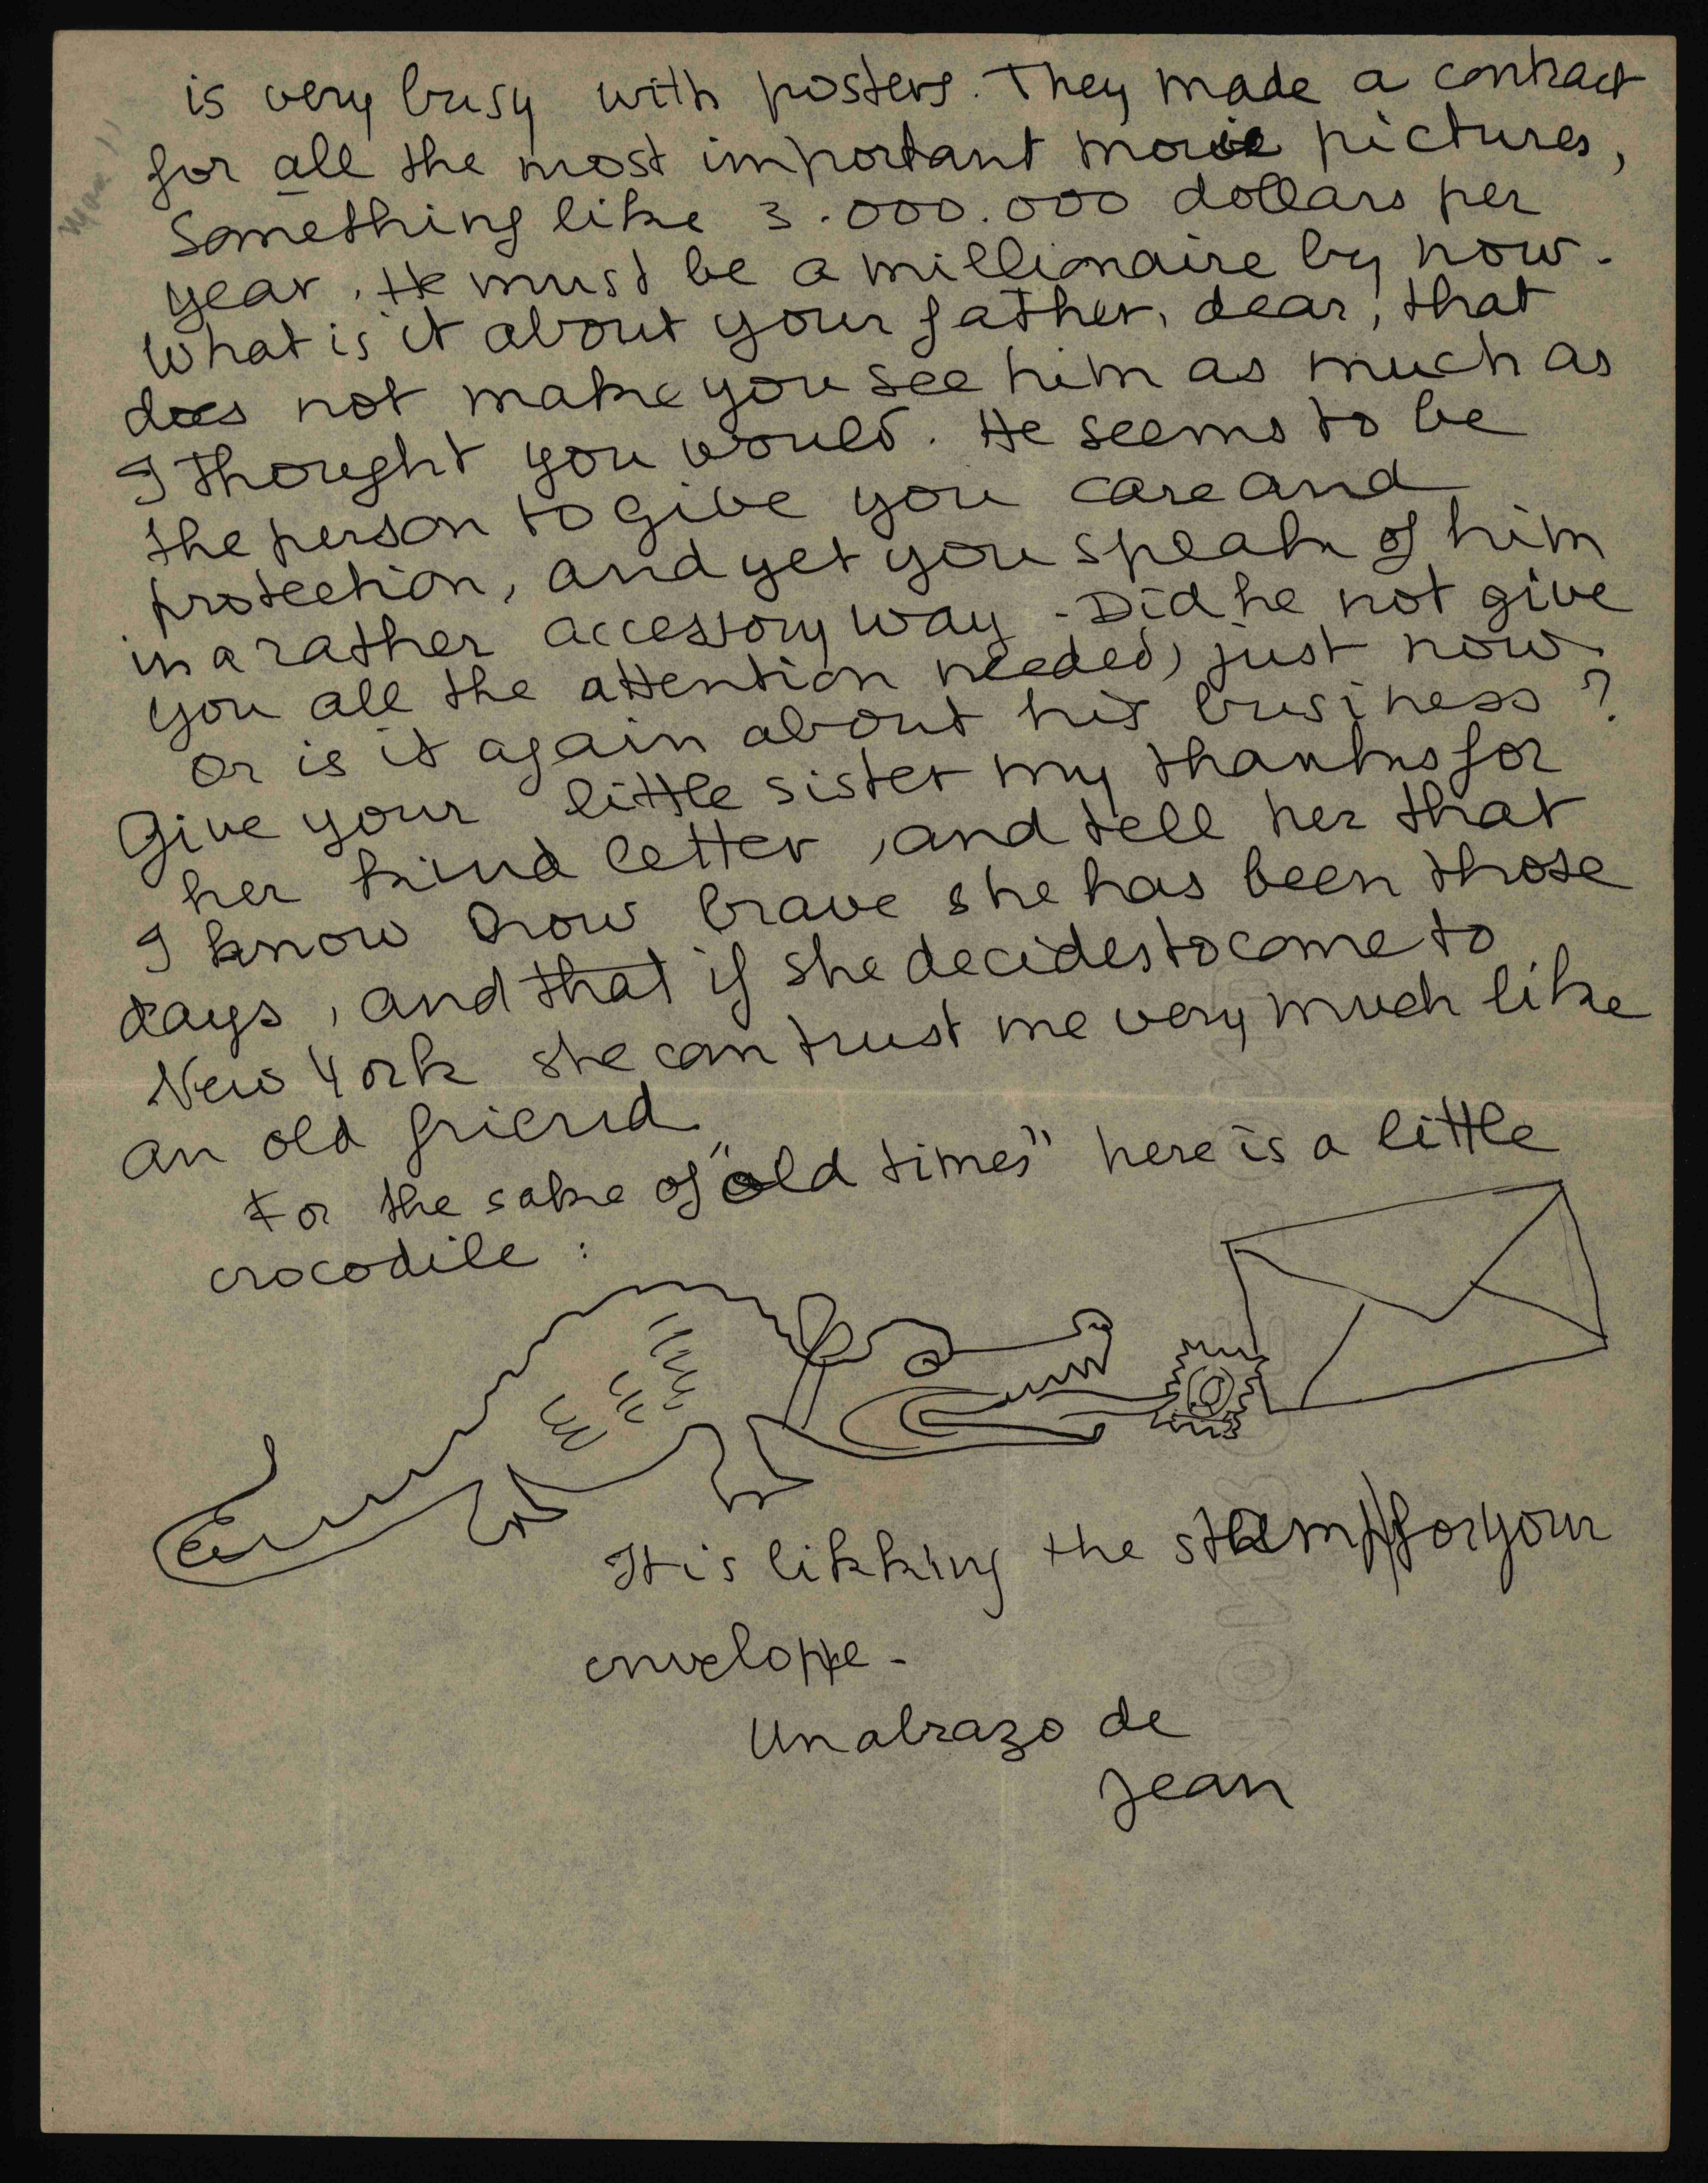 is very busy with posters. They made a contract
for all the most important movie pictures,
Something like 3.000.000 dollars per
year. He must be a millionaire by now.
What is it about your father, dear, that
does not make you see him as much as
I thought you would. He seems to be
the person to give you care and
protection, and yet you speak of him
in a rather accessory way. Did he not give
you all the attention needed, just now.
or is it again about his business?
Give your little sister my thanks for
her kind letter, and tell her that
I know how brave she has been those
days, and that if she decides to come to
New York she can trust me very much like
an old friend.
For the sake of "old times" here is a little
crocodile :
It is likking the stamp for your
enveloppe -
Un abrazo de
Jean